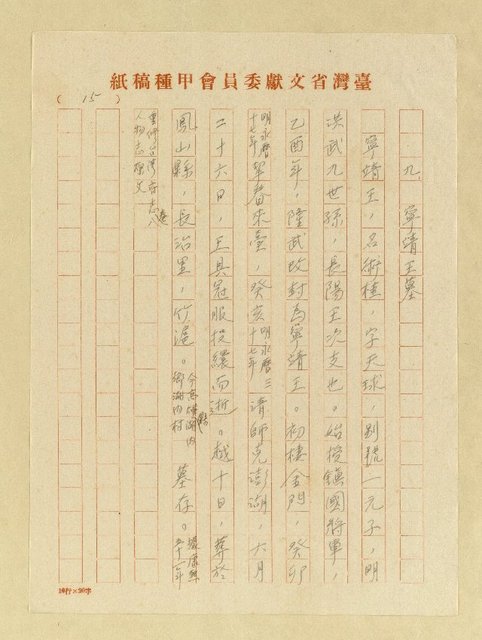 臺灣省文獻委員會甲種稿紙
( 15 )
九、寧靖王墓
寧靖王，名術桂，字天球，別號一元子，明
洪武九世孫，長陽王次支也。始授鎮國將軍，
乙酉年，隆武改封為寧靖王。初棲金門，癸卯
明永曆十七年挈眷來臺，癸亥明永曆三十七年清師克澎湖，六月
二十六日，王具冠服投繯而逝。越十日，葬於
鳳山縣，長治里，竹滬。今高雄縣湖內鄉湖內村墓存。
重修台灣省志卷八
人物志
16行×20字